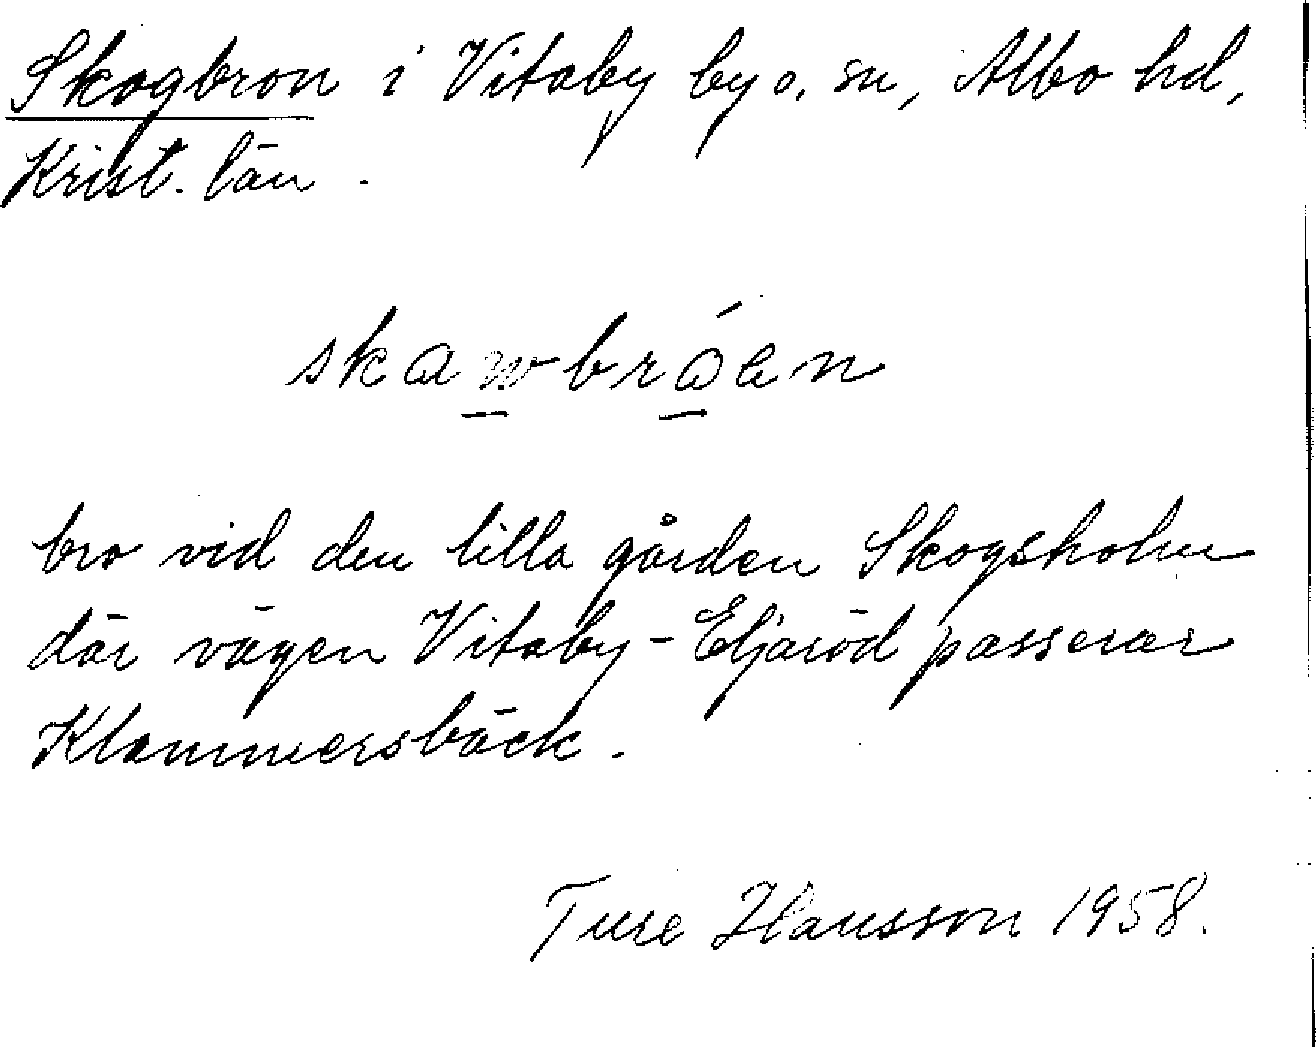 Skogbron i Vitaby by o. sn, Albo hd,
Krist. län.
skawbråen
bro vid den lilla gården Skogsholm
där vägen Vitaby-Eljaröd passerar
Klammersbäck.
Ture Hansson 1958.